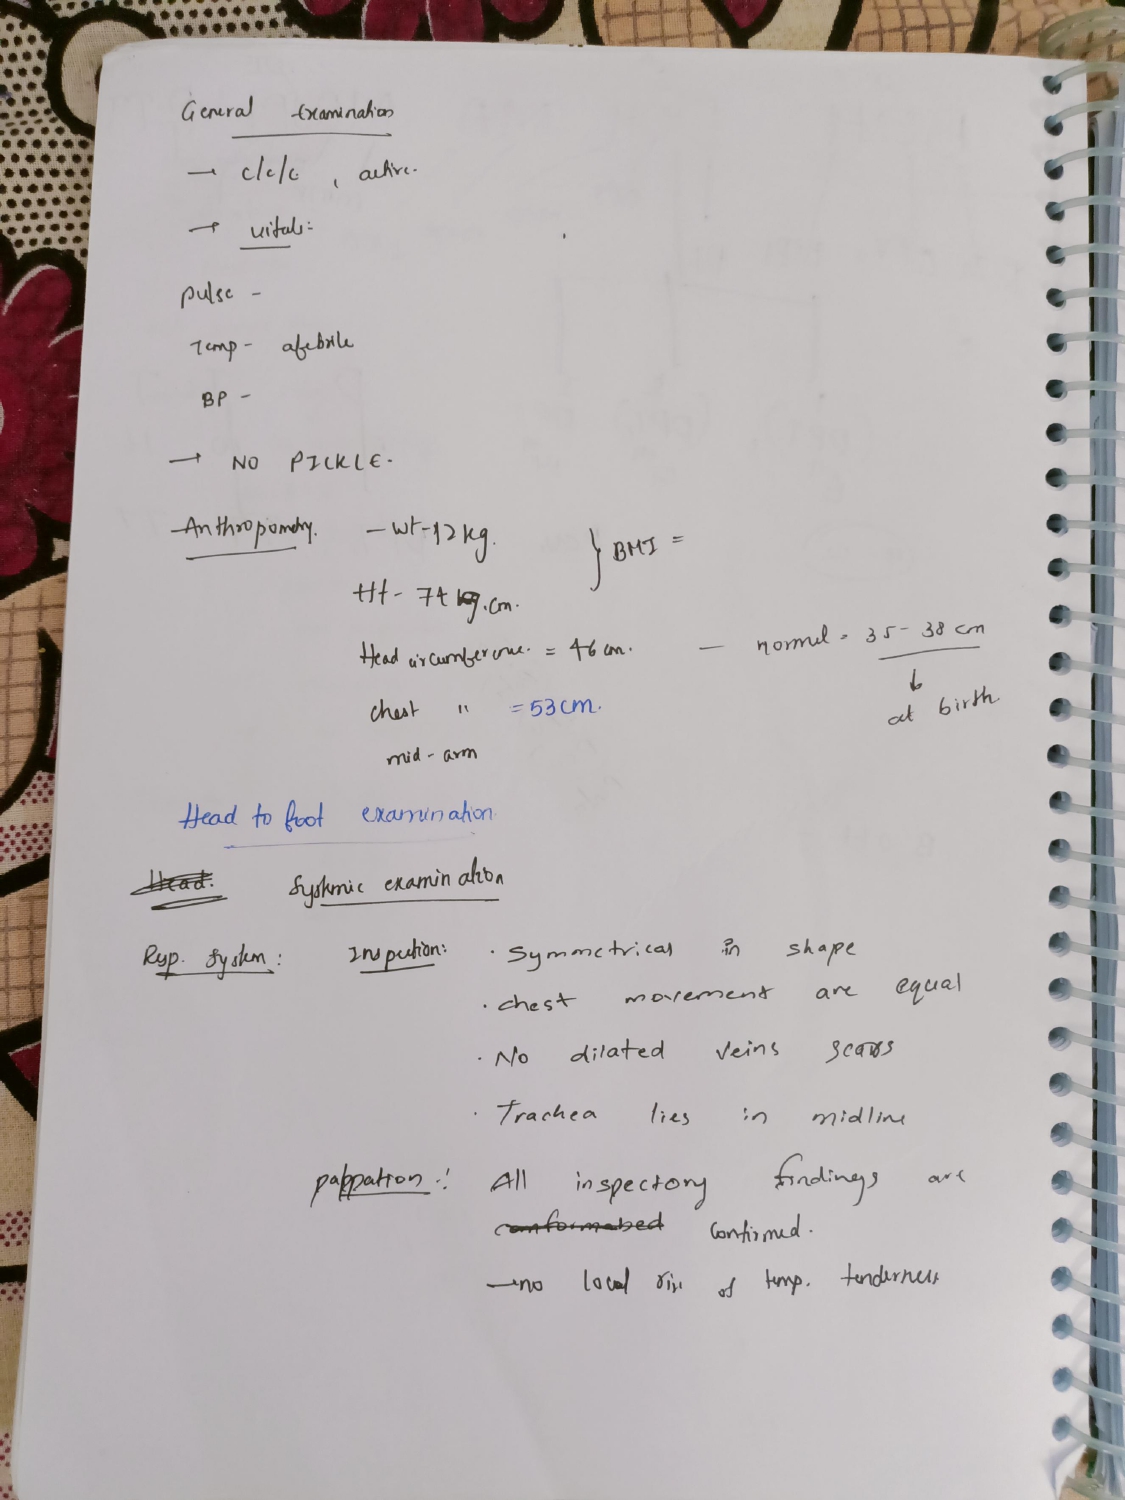 General Examination
→ c/c/c , active.
→ vitals:
pulse -
Temp - afebrile
BP -
→ NO PICKLE.
Anthropometry. - wt - 12 kg. } BMI =
Ht - 74 kg. cm.
Head circumference. = 46 cm. — normal = 35 - 38 cm
↓
chest " = 53 cm. at birth
mid - arm
Head to foot examination
Head. Systemic examination
Resp. System : Inspection: · Symmetrical in shape
· chest movement are equal
· No dilated veins scars
· Trachea lies in midline
palpation :- All inspectory findings are
conformabed confirmed.
→ no local rise of temp. tenderness